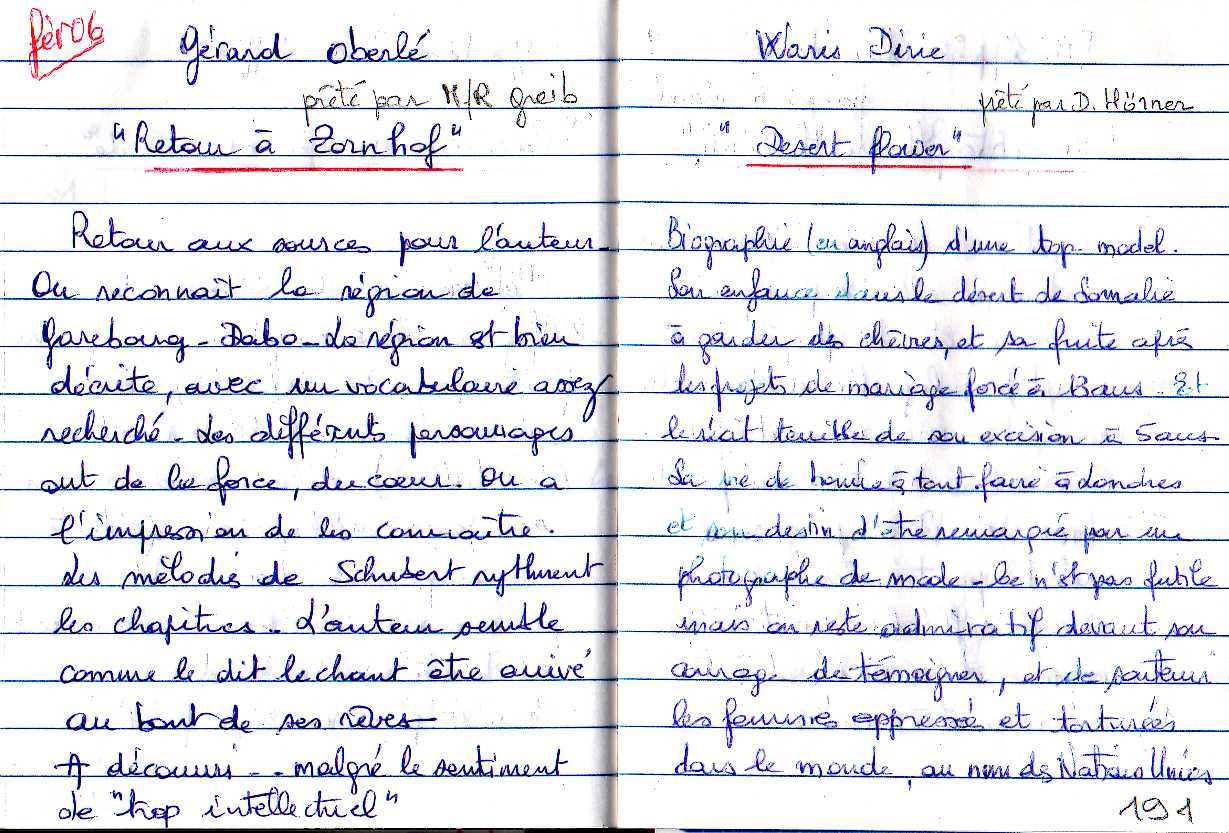 fév 06
Gérard Oberlé
prêté par M/R Greib
"Retour à Zornhof"
Retour aux sources pour l'auteur.
On reconnaît la région de
Garebourg - Dabo - La région est bien
décrite, avec un vocabulaire assez
recherché - Les différents personnages
ont de la force, du coeur. On a
l'impression de les connaître.
Les mélodies de Schubert rythment
les chapitres - L'auteur semble
comme le dit le chant être arrivé
au bout de ses rêves -
A découvrir - - malgré le sentiment
de "trop intellectuel"
Waris Dirie
prêté par D. Hörner
"Desert flower"
Biographie (en anglais) d'une top model.
Son enfance dans le désert de Somalie
à garder des chèvres, et sa fruite après
les projets de mariage forcé à 13 ans. Et
le récit terrible de son excision à 5 ans -
Sa vie de bonne à tout faire à Londres
et son destin d'être remarqué par un
photographe de mode - Ce n'est pas futile
mais on reste admiratif devant son
courage de témoigner, et de soutenir
les femmes oppressés et torturées
dans le monde, au nom des Nations Unies
191